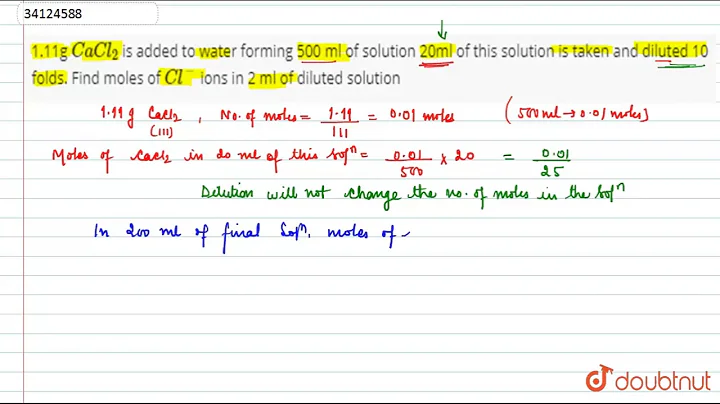 34124588
1.11g CaCl₂ is added to water forming 500 ml of solution 20ml of this solution is taken and diluted 10
folds. Find moles of Cl⁻ ions in 2 ml of diluted solution
1.11g CaCl₂, No. of moles = 1.11/111 = 0.01 moles (500ml → 0.01 moles)
(111)
Moles of CaCl₂ in 20 ml of this Solⁿ = 0.01/500 × 20 = 0.01/25
Dilution will not change the no. of moles in the Solⁿ
In 200 ml of final Solⁿ, moles of
doubtnut